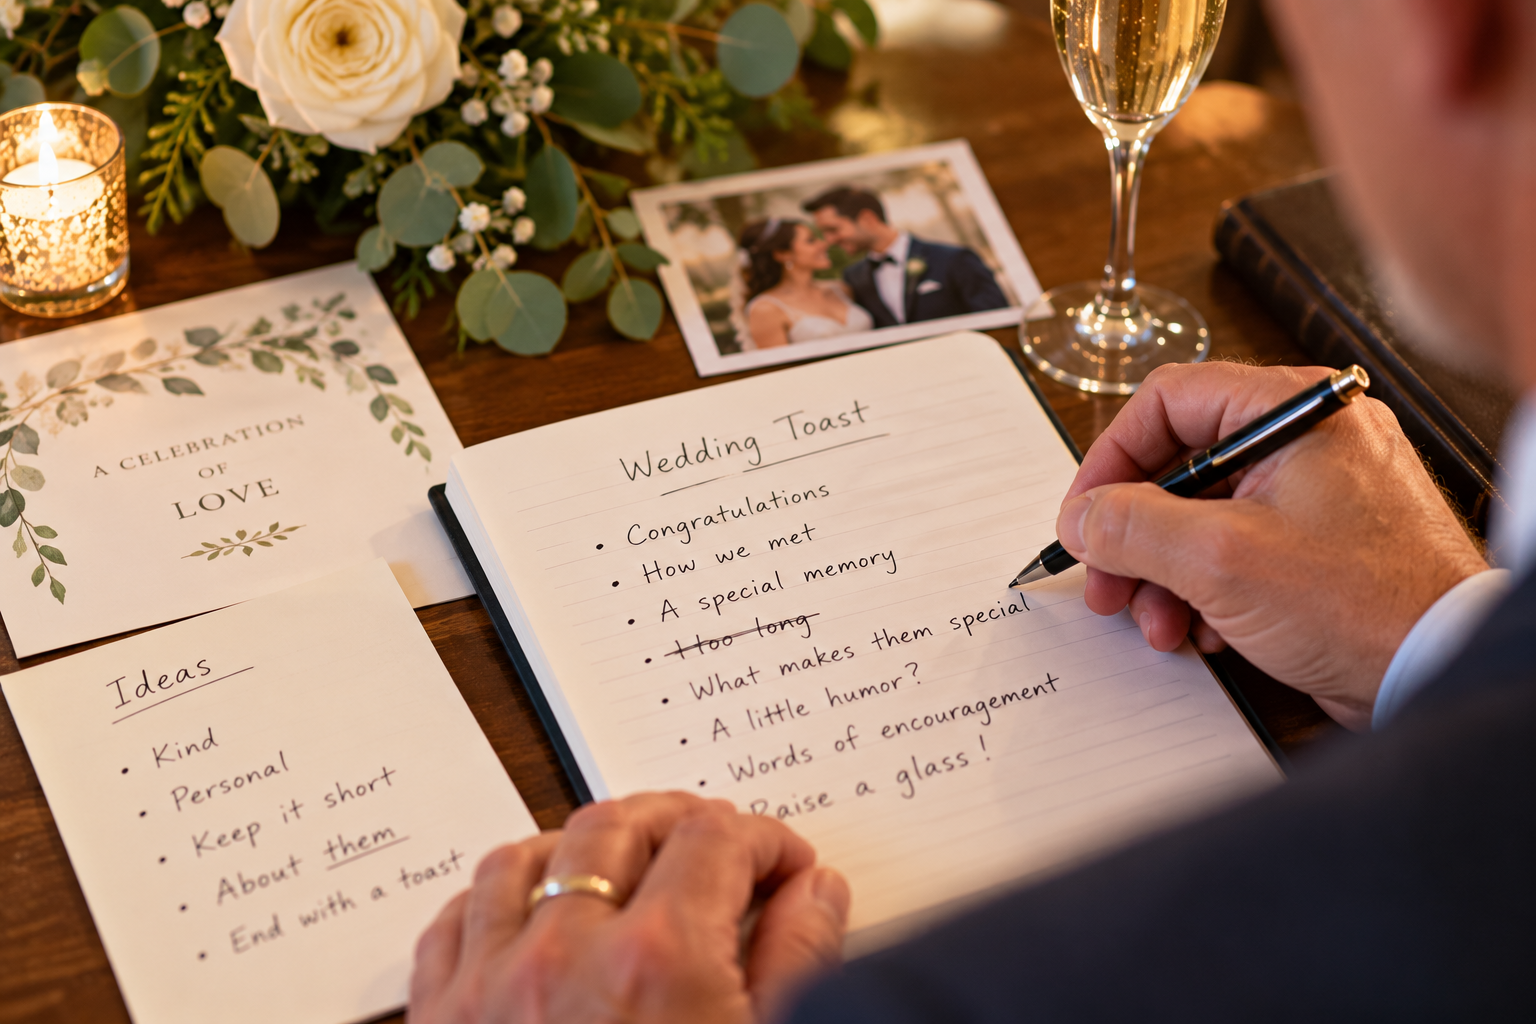 A CELEBRATION
OF
LOVE
Ideas
• Kind
• Personal
• Keep it short
• About them
• End with a toast
Wedding Toast
• Congratulations
• How we met
• A special memory
• too long
• What makes them special
• A little humor?
• Words of encouragement
Raise a glass!